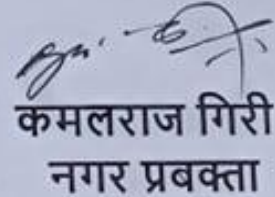 कमलराज गिरी
नगर प्रबक्ता